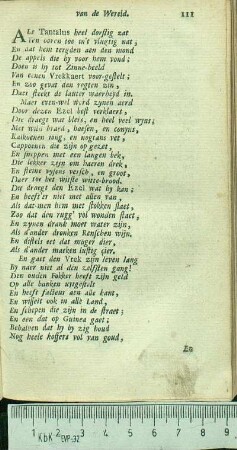 van de Wereld. 111
ALs Tantalus heel dorstig zat
En hem tergden aen den mond
De appels die hy voor hem vond;
Doen is hy tot Zinne-beeld
Van eenen Vrekkaert voor-gestelt;
En zoo gevat den regten zin,
Daer steekt de lauter waerheyd in.
Maer even-wel werd zynen aerd
Door dezen Ezel best verklaert,
Die draegt wat vleis, en heel veel wyns;
Met wild braed, haesen, en conyns,
Kalkoenen jong, en nogtans vet,
Cappoenen die zijn op gezet,
En snippen met een langen bek,
Die lekker zijn om haeren drek,
En steene vysjens versch, en groot,
Daer toe het witste witte-brood.
Die draegt den Ezel wat hy kan;
En heeft'er niet met allen van,
Als dat men hem met stokken slaet,
Zoo dat den rugg' vol wonden staet,
En zynen drank moet water zijn,
Als d'ander dronken Renschen wijn,
En distels eet dat muger dier,
Als d'ander maeken lustig cier.
En gaet den Vrek zijn leven lang
By naer niet al den zelfsten gang?
Dien ouden Fokker heeft zijn geld
Op alle banken uytgestelt
En heeft facteur aen alle kant,
En wisselt ook in alle Land,
En schepen die zijn in de straet;
En een dat op Guinea gaet;
Behalven dat hy by zig houd
Nog heele koffers vol van goud,
En
1 2 3 4 5 6 7 8 9
KbK EVP-32